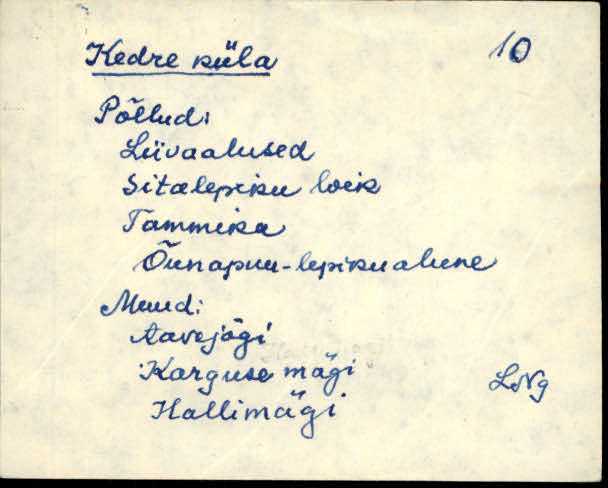 Kedre küla 10
Põllud:
Liivaalused
Sitalepiku loik
Tammika
Õunapuu-lepikualune
Muud:
Aavejõgi
Karguse mägi
LNg
Hallimägi